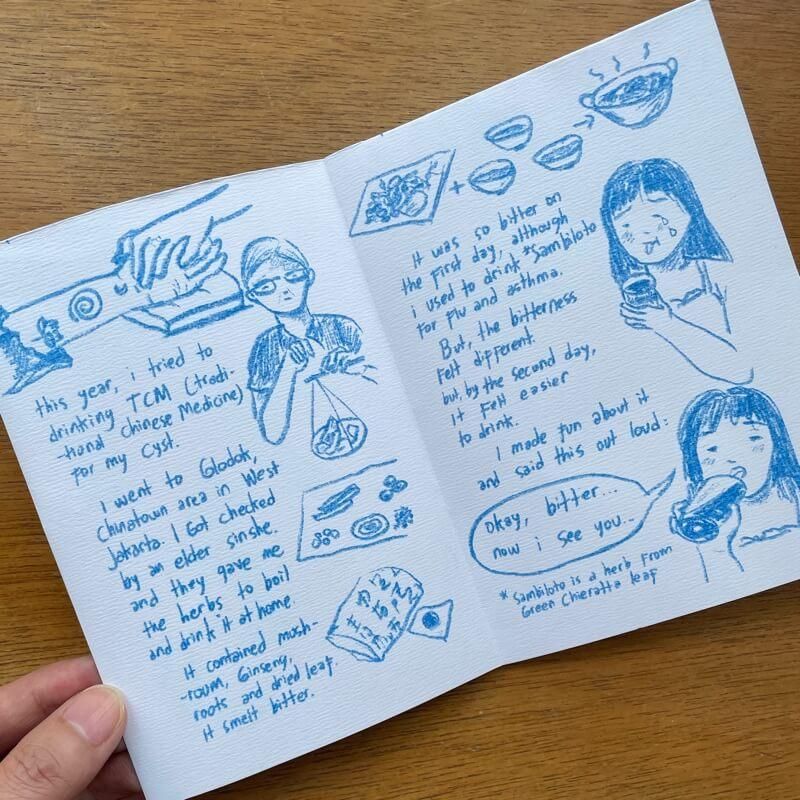 this year, i tried to
drinking TCM (tradi-
-tional Chinese Medicine)
For my cyst.
I went to Glodok,
Chinatown area in West
Jakarta. I Got checked
by an elder sinshe.
and they gave me
the herbs to boil
and drink it at home.
It contained mush-
-roum, Ginseng,
roots and dried leaf.
It smelt bitter.
It was so bitter on
the first day, although
i used to drink *Sambiloto
For flu and asthma.
But, the bitterness
Felt different.
but, by the second day,
It Felt easier
to drink.
I made fun about it
and said this out loud:
okay, bitter...
now i see you..
* Sambiloto is a herb From
Green Chieratta leaf